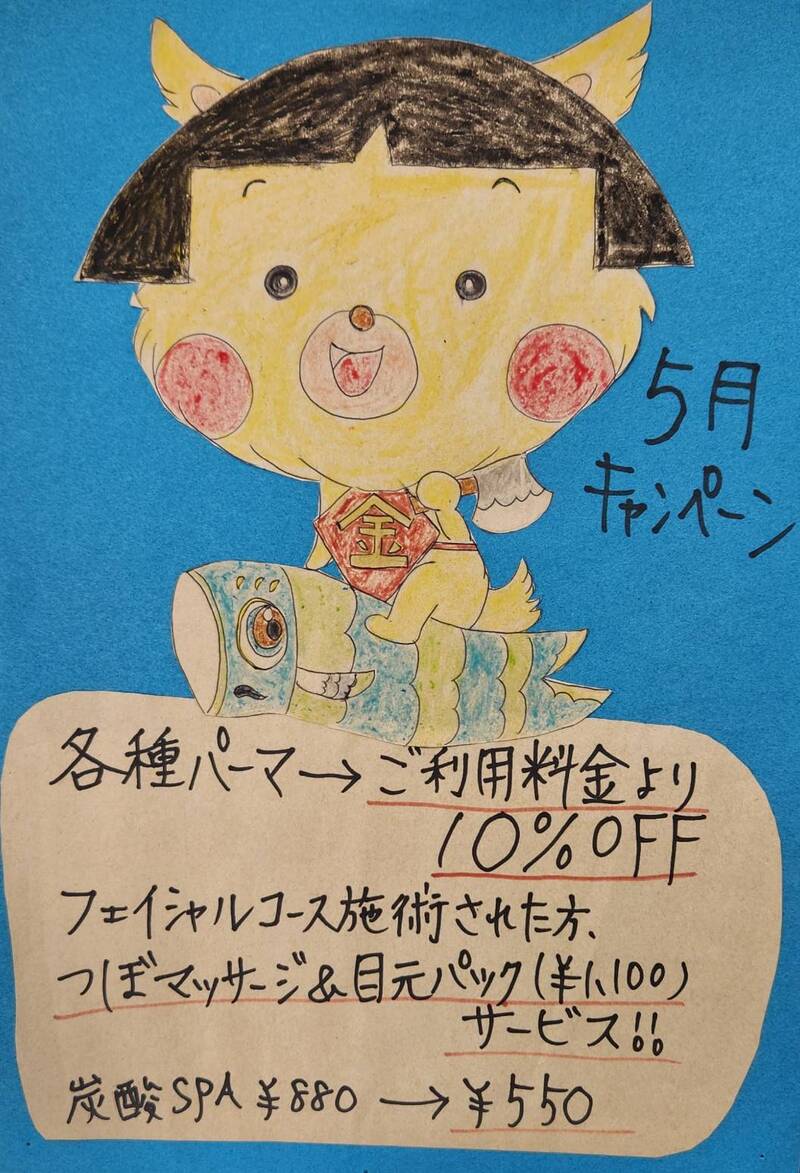 5月
キャンペーン
金
各種パーマ→ご利用料金より
10%OFF
フェイシャルコース施術された方、
つぼマッサージ&目元パック(¥1,100)
サービス!!
炭酸SPA ¥880→¥550